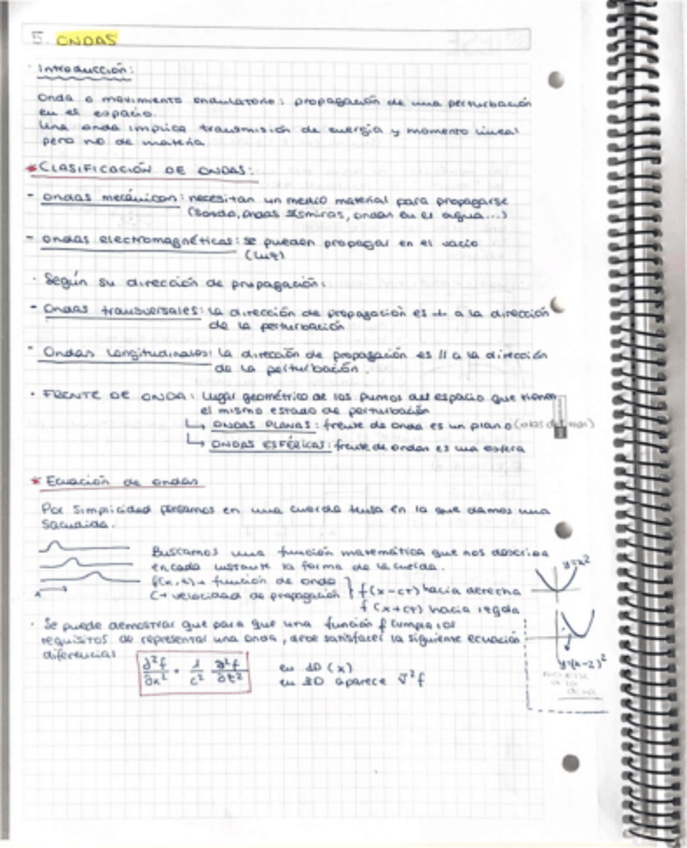 5. ONDAS
· Introducción:
Onda o movimiento ondulatorio: propagación de una perturbación
en el espacio.
Una onda implica transmisión de energía y momento lineal
pero no de materia.
* CLASIFICACIÓN DE ONDAS:
- Ondas mecánicas: necesitan un medio material para propagarse
(sonido, ondas sísmicas, ondas en el agua...)
- Ondas electromagnéticas: se pueden propagar en el vacío
(luz)
· Según su dirección de propagación:
- Ondas transversales: la dirección de propagación es ⊥ a la dirección
de la perturbación
- Ondas longitudinales: la dirección de propagación es // a la dirección
de la perturbación.
· FRENTE DE ONDA: Lugar geométrico de los puntos del espacio que tienen
el mismo estado de perturbación
↳ ONDAS PLANAS: frente de onda es un plano (olas del mar)
↳ ONDAS ESFÉRICAS: frente de ondas es una esfera
* Ecuación de ondas
Por simplicidad pensamos en una cuerda tensa en la que damos una
sacudida.
Buscamos una función matemática que nos describa
en cada instante la forma de la cuerda.
f(x,t) → función de onda
C → velocidad de propagación } f(x-ct) hacia derecha
f(x+ct) hacia izqda
y=x²
y=(x-2)²
· Se puede demostrar que para que una función f cumpla los
requisitos de representar una onda, debe satisfacer la siguiente ecuación
diferencial
∂²f/∂x² = 1/c² ∂²f/∂t²
en 1D (x)
en 3D aparece ∇²f